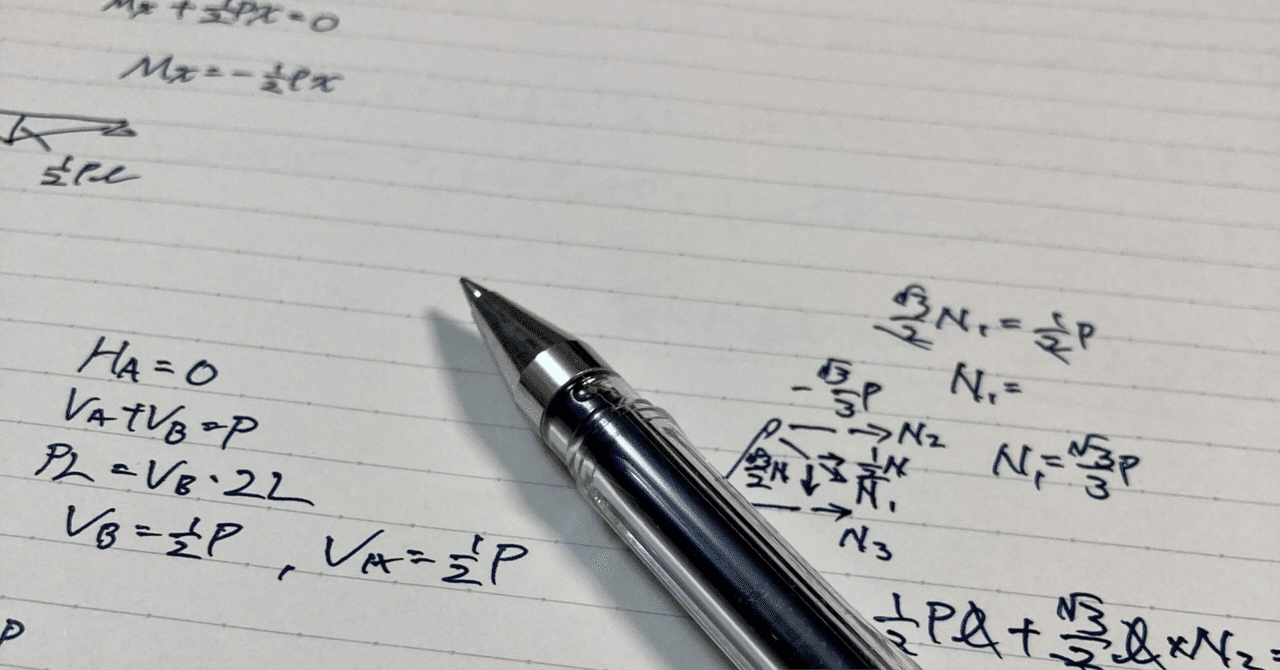 Mx + 1/2 Px = 0
Mx = - 1/2 Px
1/2 Pl
HA = 0
VA + VB = P
PL = VB · 2L
VB = 1/2 P , VA = 1/2 P
P
√3/2 N1 = 1/2 P
N1 =
- √3/3 P
N2
N1 = √3/3 P
√3/2 N
1/2 N
N1
N3
1/2 Pl + √3/2 l × N2 =